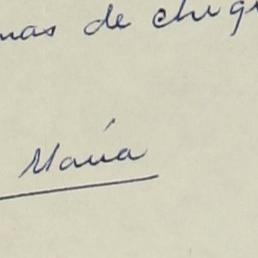 mas de chequ
María